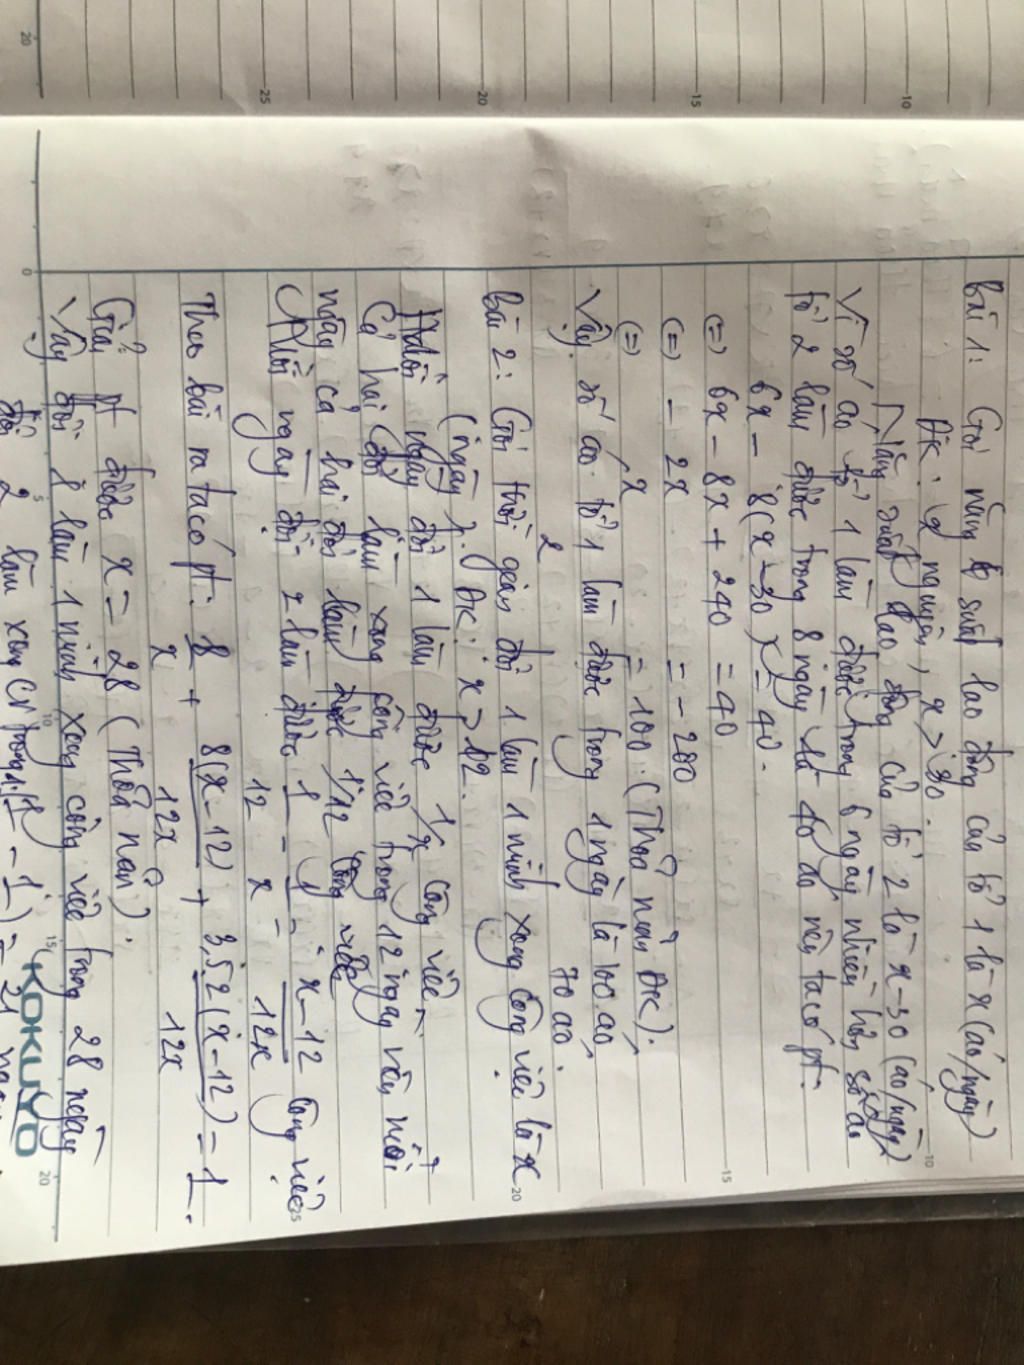 Bài 1: Gọi năng suất lao động của tổ 1 là x (áo/ngày)
ĐK: x nguyên, x > 30.
Năng suất lao động của tổ 2 là x-30 (áo/ngày)
Vì số áo tổ 1 làm được trong 6 ngày nhiều hơn số áo
tổ 2 làm được trong 8 ngày là 40 áo nên ta có pt:
6x - 8(x-30) = 40.
(=) 6x - 8x + 240 = 40
(=) - 2x = - 200
(=) x = 100. (Thỏa mãn ĐK).
Vậy số áo tổ 1 làm được trong 1 ngày là 100 áo,
2 70 áo.
Bài 2: Gọi thời gian đội 1 làm 1 mình xong công việc là x
(ngày). ĐK: x > 12.
Mỗi ngày đội 1 làm được 1/x công việc
Cả hai đội làm xong công việc trong 12 ngày nên mỗi
ngày cả hai đội làm được 1/12 công việc
Mỗi ngày đội 2 làm được 1/12 - 1/x = x-12/12x công việc
Theo bài ra ta có pt: 8/x + 8(x-12)/12x + 3,5.2(x-12)/12x = 1.
Giải pt được x = 28 (Thỏa mãn).
Vậy đội 1 làm 1 mình xong công việc trong 28 ngày
đội 2 làm xong cv trong 1: = 21 ngày
KOKUYO
20
25
20
15
10
0
5
10
15
20
10
15
20
25